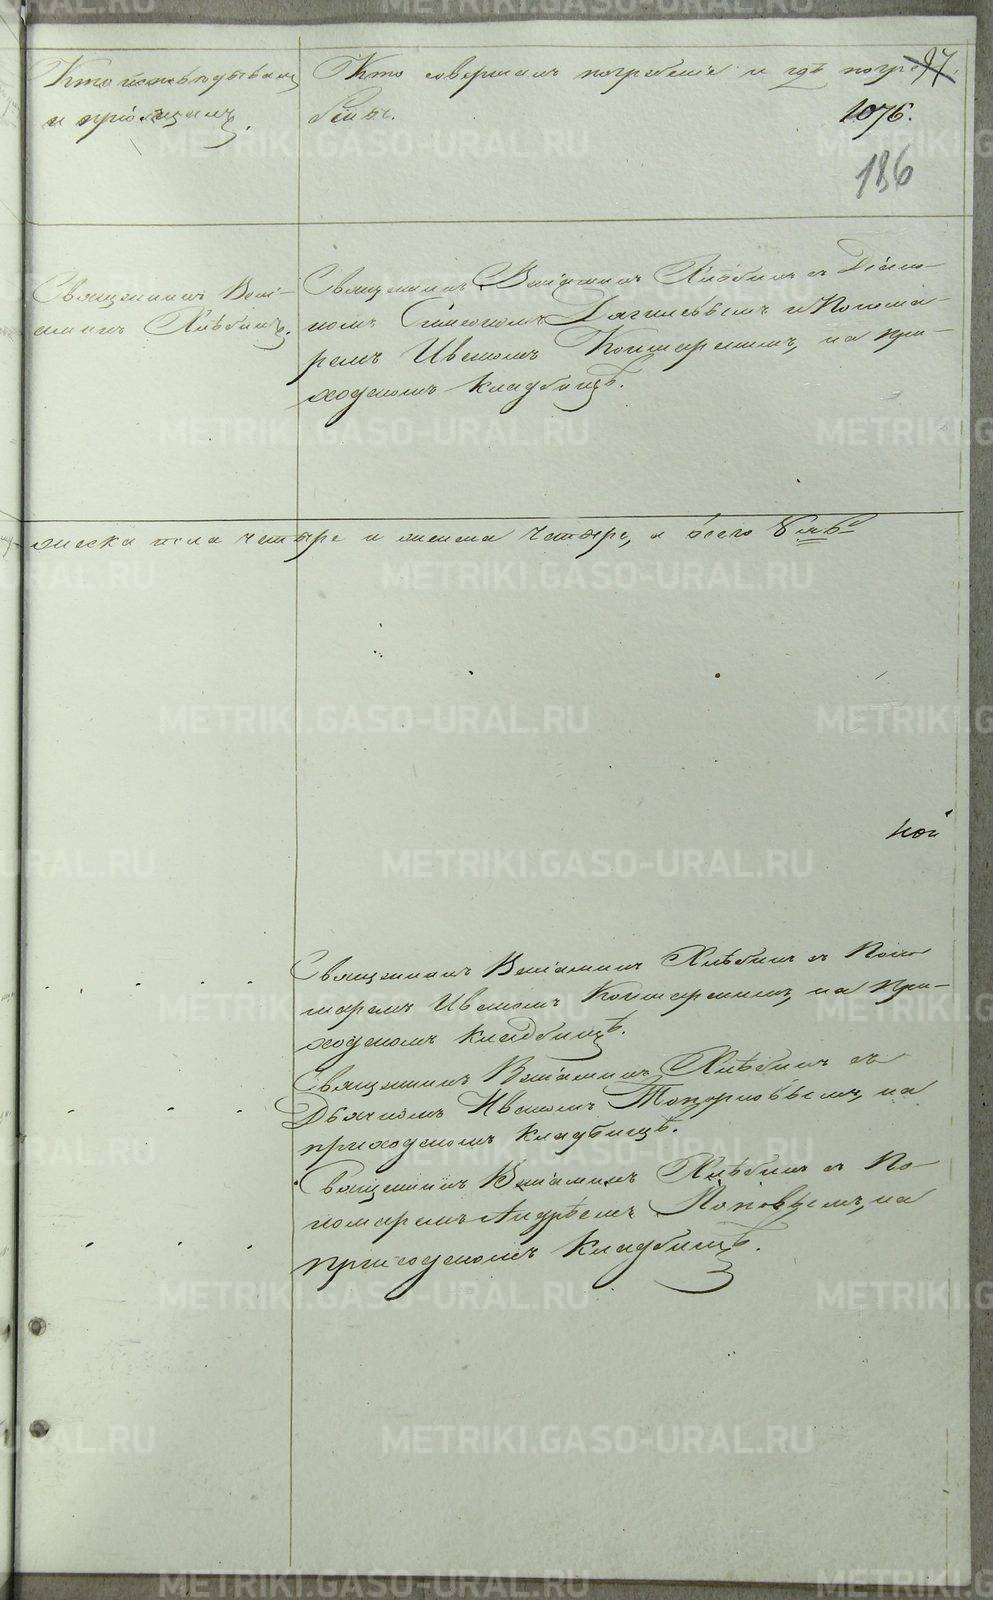 Кто исповѣдывалъ
и пріобщалъ.
Кто совершалъ погребеніе и гдѣ погре-
бены.
97.
1076.
186
Священникъ Вені-
аминъ Хлѣбинъ.
Священникъ Веніаминъ Хлѣбинъ съ Діако-
номъ Симеономъ и Понома-
ремъ Иваномъ на при-
ходскомъ кладбищѣ.
четыре и женска четыре, а всего 8
ной
Священникъ Веніаминъ Хлѣбинъ съ Поно-
маремъ Иваномъ на при-
ходскомъ кладбищѣ.
Священникъ Веніаминъ Хлѣбинъ съ
Дьячкомъ Иваномъ Топорковымъ, на
приходскомъ кладбищѣ.
Священникъ Веніаминъ Хлѣбинъ съ По-
номаремъ Андреемъ Поповымъ, на
приходскомъ кладбищѣ.
METRIKI.GASO-URAL.RU